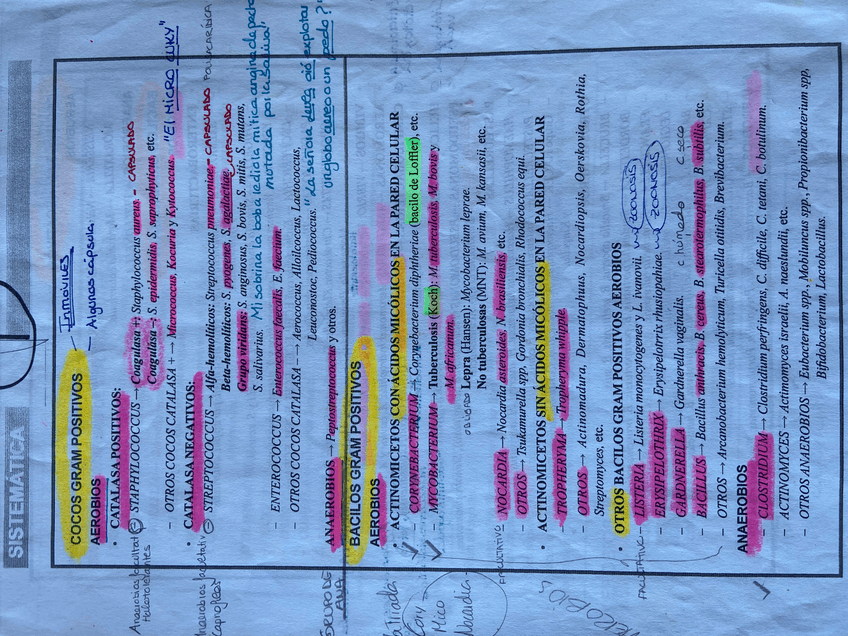 SISTEMÁTICA
COCOS GRAM POSITIVOS
— Inmóviles
— Algunas cápsula
AEROBIOS
• CATALASA POSITIVOS:
– STAPHYLOCOCCUS → Coagulasa +: Staphylococcus aureus - CAPSULADO
Coagulasa -: S. epidermidis, S. saprophyticus, etc.
Anaerobios facultat
Halotolerantes
– OTROS COCOS CATALASA + → Micrococcus, Kocuria y Kytococcus. "El MICRO CUKY"
• CATALASA NEGATIVOS:
– STREPTOCOCCUS → Alfa-hemolíticos: Streptococcus pneumoniae - CAPSULADO POLISACARÍDICA
Beta-hemolíticos: S. pyogenes, S. agalactiae. CAPSULADO
Grupo viridans: S. anginosus, S. bovis, S. mitis, S. mutans,
S. salivarius. Mi sobrina la boba le dio la mítica angina de pecho
mutada por la saliva"
– ENTEROCOCCUS → Enterococcus faecalis, E. faecium.
– OTROS COCOS CATALASA - → Aerococcus, Alloilcoccus, Lactococcus,
Leuconostoc, Pediococcus. "La señora explotar
un globo aereo o un pedo?"
ANAEROBIOS → Peptostreptococcus y otros.
GRUPO DE
ANA
BACILOS GRAM POSITIVOS
AEROBIOS
• ACTINOMICETOS CON ÁCIDOS MICÓLICOS EN LA PARED CELULAR
– CORINEBACTERIUM → Corygebacterium diphtheriae (bacilo de Loffler), etc.
– MYCOBACTERIUM → Tuberculosis (Koch): M tuberculosis, M bovis y
M. africanum.
Lepra (Hansen): Mycobacterium leprae.
No tuberculosas (MNT): M. avium, M. kansasii, etc.
Cory
Mico
Nocardia
– NOCARDIA → Nocardia asteroides, N. brasiliensis, etc.
– OTROS → Tsukamurella spp. Gordonia bronchialis, Rhodococcus equi.
• ACTINOMICETOS SIN ÁCIDOS MICÓLICOS EN LA PARED CELULAR
FACULTATIVO
– TROPHERYMA → Tropheryma whipple.
– OTROS → Actinomadura, Dermatophuus, Nocardiopsis, Oerskovia, Rothia,
Streptomyces, etc.
• OTROS BACILOS GRAM POSITIVOS AEROBIOS
FACULTATIVO
– LISTERIA → Listeria monocytogenes y L. ivanovii. ZOONOSIS
– ERYSIPELOTHRIX → Erysipelotrrix rhusiopathiae. ZOONOSIS
– GARDNERELLA → Gardnerella vaginalis. c húmedo c seco
– BACILLUS → Bacillus anthracis, B. cereus, B. stearotermophilus, B. subtilis, etc.
– OTROS → Arcanobacterium hemolyticum, Turicella otitidis, Brevibacterium.
ANAEROBIOS
– CLOSTRIDIUM → Clostridium perfringens, C. difficile, C. tetani, C. botulinum.
– ACTINOMICES → Actinomyces israelii, A. naeslundii, etc.
– OTROS ANAEROBIOS → Eubacterium spp., Mobiluncus spp., Propionibacterium spp,
Bifidobacterium, Lactobacillus.